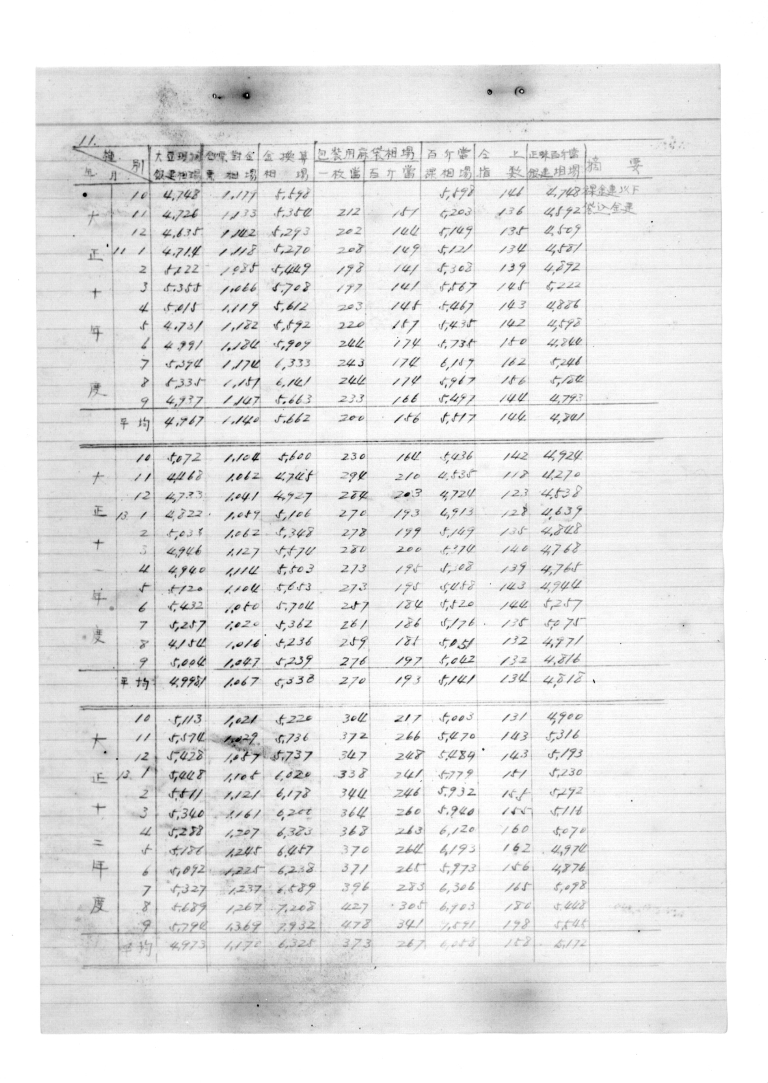 11.
種別 年月 大豆現物銀建相場 對金相場 金換算相場 包裝用麻袋相場 一枚當 百斤當 百斤當裸相場 仝上指數 正味百斤當銀建相場 摘要
10 4,748 1,179 5,598 5,598 146 4,748 裸金建以下
大 11 4,726 1,133 5,354 212 151 5,203 136 4,592 袋込金建
12 4,635 1,142 5,293 202 144 5,149 135 4,509
正 11 1 4,714 1,118 5,270 208 149 5,121 134 4,581
2 5,022 1,085 5,449 198 141 5,308 139 4,892
十 3 5,355 1,066 5,708 197 141 5,567 145 5,222
4 5,015 1,119 5,612 203 145 5,467 143 4,886
年 5 4,731 1,182 5,592 220 157 5,435 142 4,598
6 4,991 1,184 5,909 244 174 5,735 150 4,844
7 5,394 1,174 6,333 243 174 6,159 162 5,246
度 8 5,335 1,151 6,141 244 174 5,967 156 5,184
9 4,937 1,147 5,663 233 166 5,497 144 4,793
平均 4,967 1,140 5,662 200 156 5,517 144 4,841
10 5,072 1,104 5,600 230 164 5,436 142 4,924
大 11 4,468 1,062 4,745 294 210 4,535 118 4,270
12 4,733 1,041 4,927 284 203 4,724 123 4,538
正 13 1 4,822 1,059 5,106 270 193 4,913 128 4,639
2 5,033 1,062 5,348 278 199 5,149 135 4,848
十 3 4,946 1,127 5,574 280 200 5,374 140 4,768
一 4 4,940 1,114 5,503 273 195 5,308 139 4,765
5 5,120 1,104 5,653 273 195 5,458 143 4,944
年 6 5,432 1,050 5,704 257 184 5,520 144 5,257
7 5,257 1,020 5,362 261 186 5,176 135 5,075
度 8 4,154 1,016 5,236 259 185 5,051 132 4,971
9 5,004 1,047 5,239 276 197 5,042 132 4,816
平均 4,998 1,067 5,338 270 193 5,141 134 4,818
10 5,113 1,021 5,220 304 217 5,003 131 4,900
大 11 5,574 1,029 5,736 372 266 5,470 143 5,316
12 5,428 1,057 5,737 347 248 5,489 143 5,193
正 13 1 5,448 1,105 6,020 338 241 5,779 151 5,230
2 5,511 1,121 6,178 344 246 5,932 155 5,292
十 3 5,340 1,161 6,200 364 260 5,940 155 5,116
4 5,288 1,207 6,383 368 263 6,120 160 5,070
二 5 5,186 1,245 6,457 370 264 6,193 162 4,974
年 6 5,092 1,225 6,238 371 265 5,973 156 4,876
7 5,327 1,237 6,589 396 283 6,306 165 5,098
度 8 5,689 1,267 7,208 427 305 6,903 180 5,448
9 5,794 1,369 7,932 478 341 7,591 198 5,545
平均 4,973 1,170 6,325 373 267 6,058 158 5,172